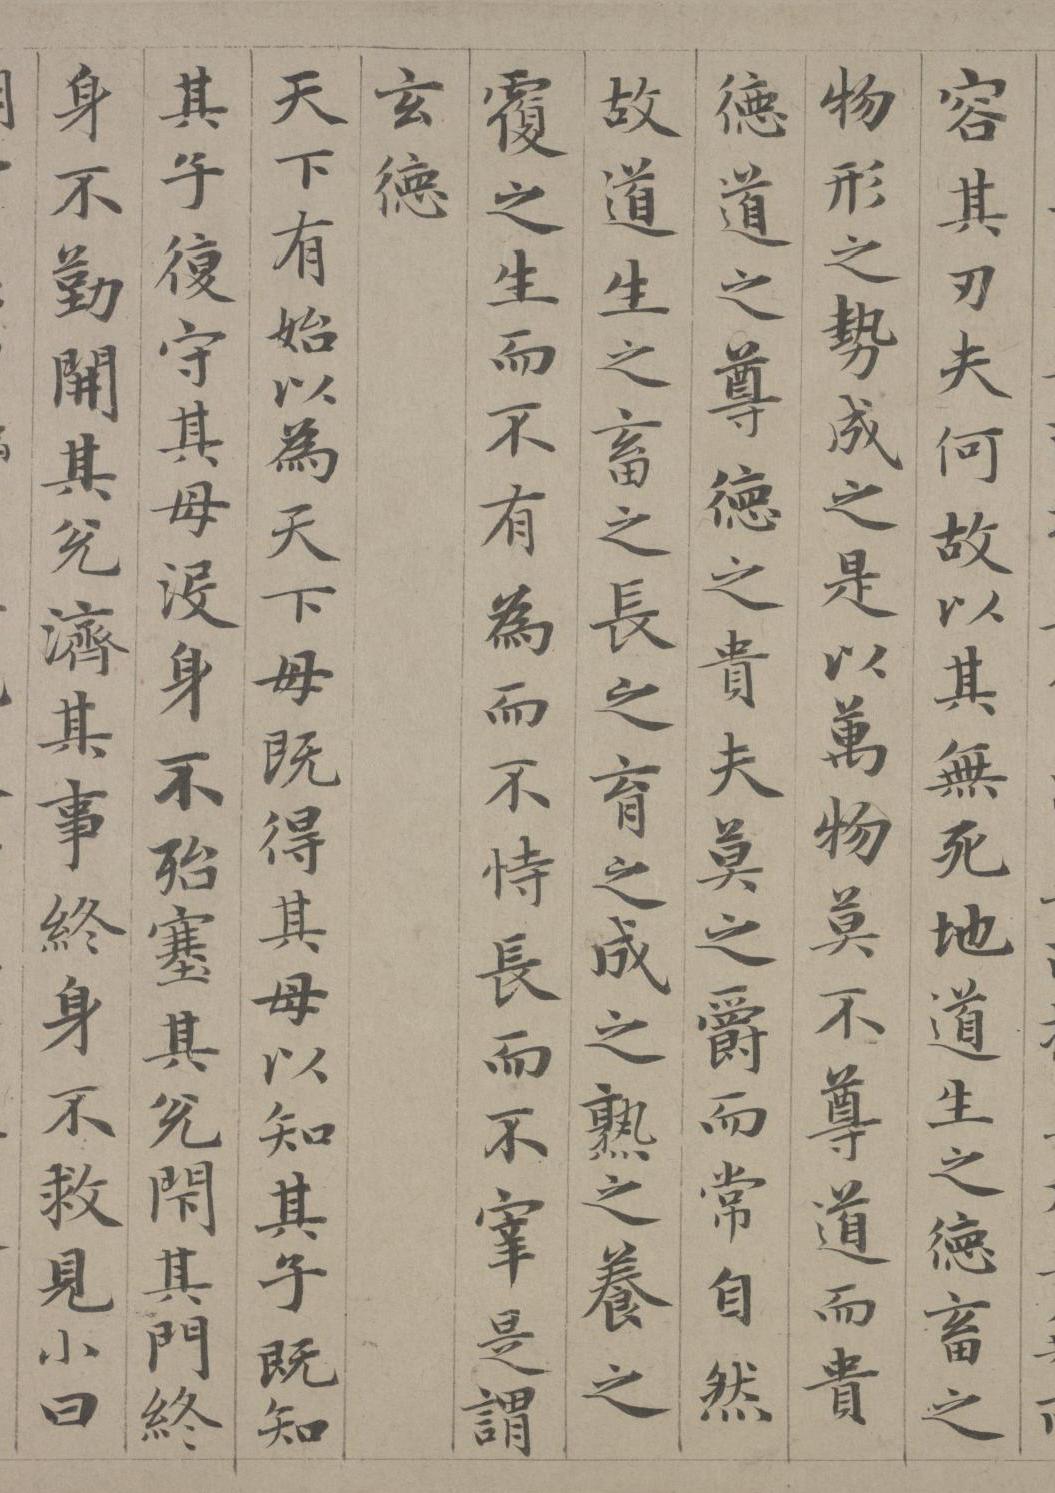 容其刃夫何故以其無死地道生之德畜之
物形之勢成之是以萬物莫不尊道而貴
德道之尊德之貴夫莫之爵而常自然
故道生之畜之長之育之成之熟之養之
覆之生而不有為而不恃長而不宰是謂
玄德
天下有始以為天下母既得其母以知其子既知
其子復守其母沒身不殆塞其兊閇其門終
身不勤開其兊濟其事終身不救見小曰